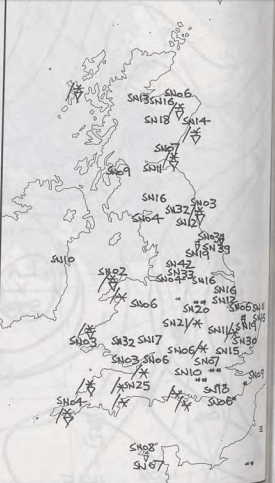 SN06
SN13 SN16
SN18 SN14
SN07
SN09 SN11
SN16
SN03
SN32
SN04
SN12
SN39
SN19
SN10
SN42
SN33
SN02
SN04 SN16
SN16
SN06
SN12
SN06
SN20
SN19
SN21
SN11
SN03
SN30
SN32 SN17
SN06
SN15
SN03 SN06
SN07
SN09
SN10
SN25
SN13
SN04
SN06
SN08
SN07